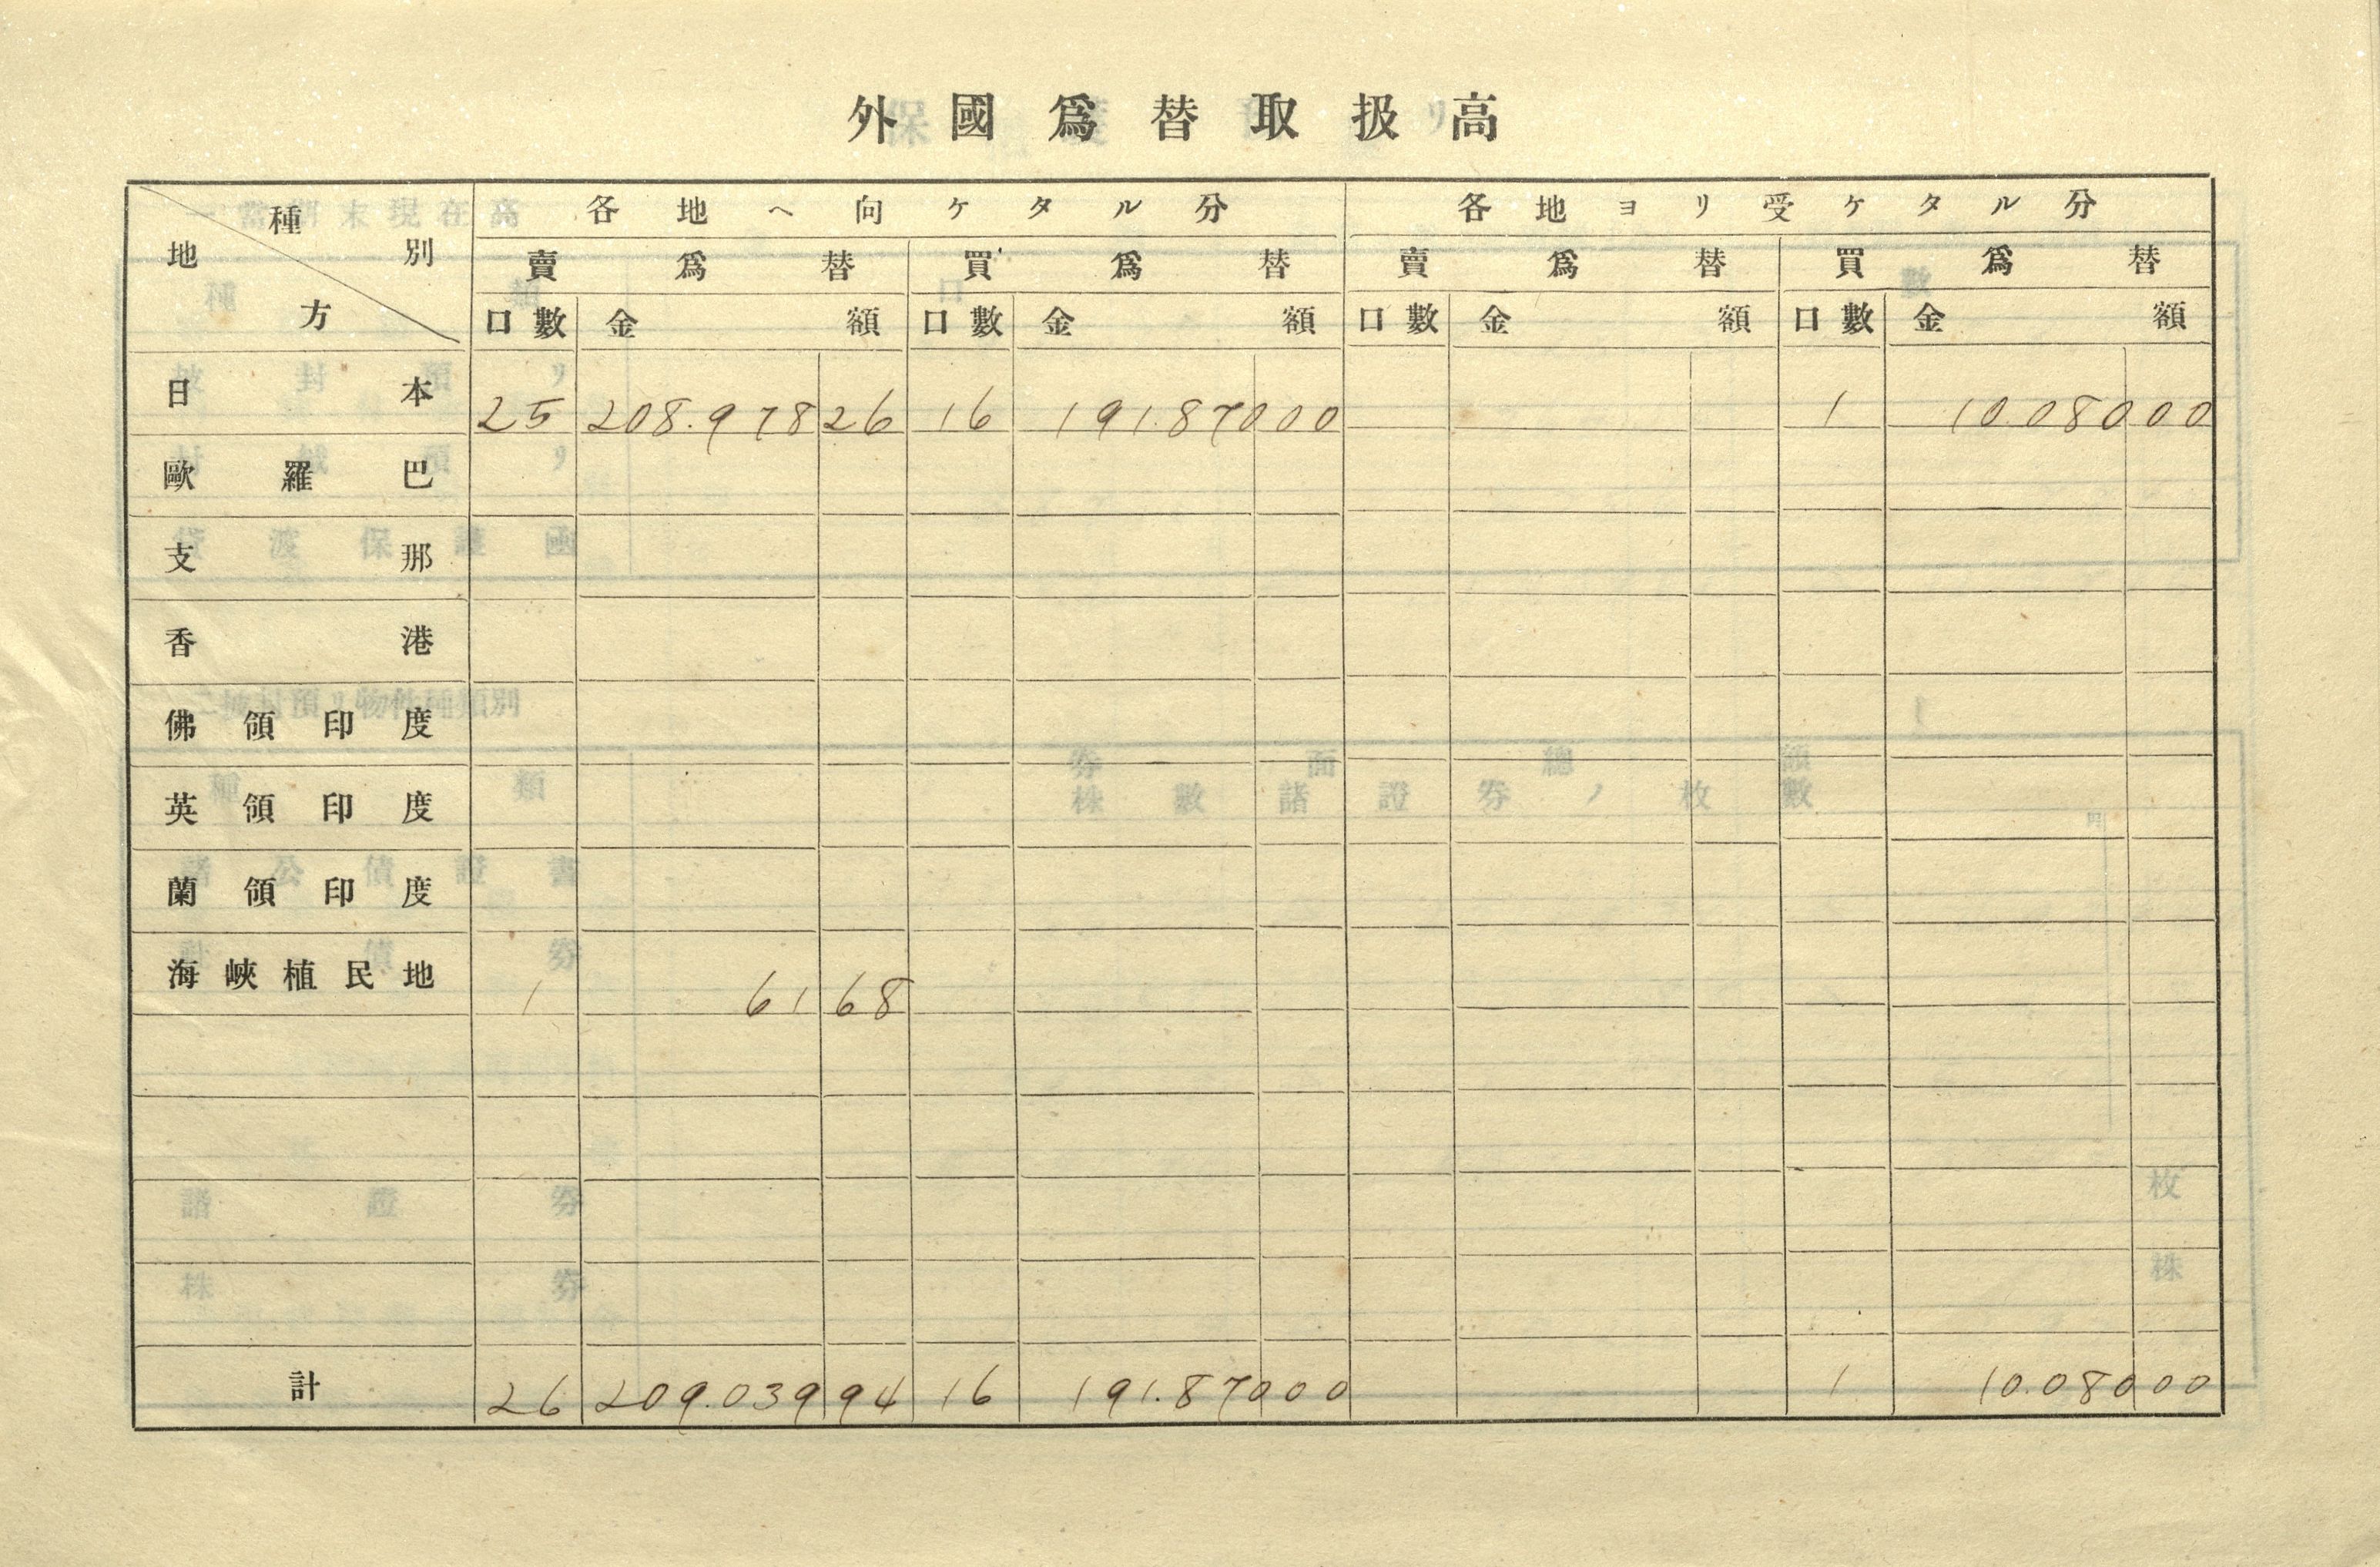 外國爲替取扱高
種別 地方 各地ヘ向ケタル分 各地ヨリ受ケタル分
賣爲替 買爲替 賣爲替 買爲替
口數 金額 口數 金額 口數 金額 口數 金額
日本 25 208.978 26 16 191.870 00 1 10.080 00
歐羅巴
支那
香港
佛領印度
英領印度
蘭領印度
海峽植民地 1 61 68
計 26 209.039 94 16 191.870 00 1 10.080 00